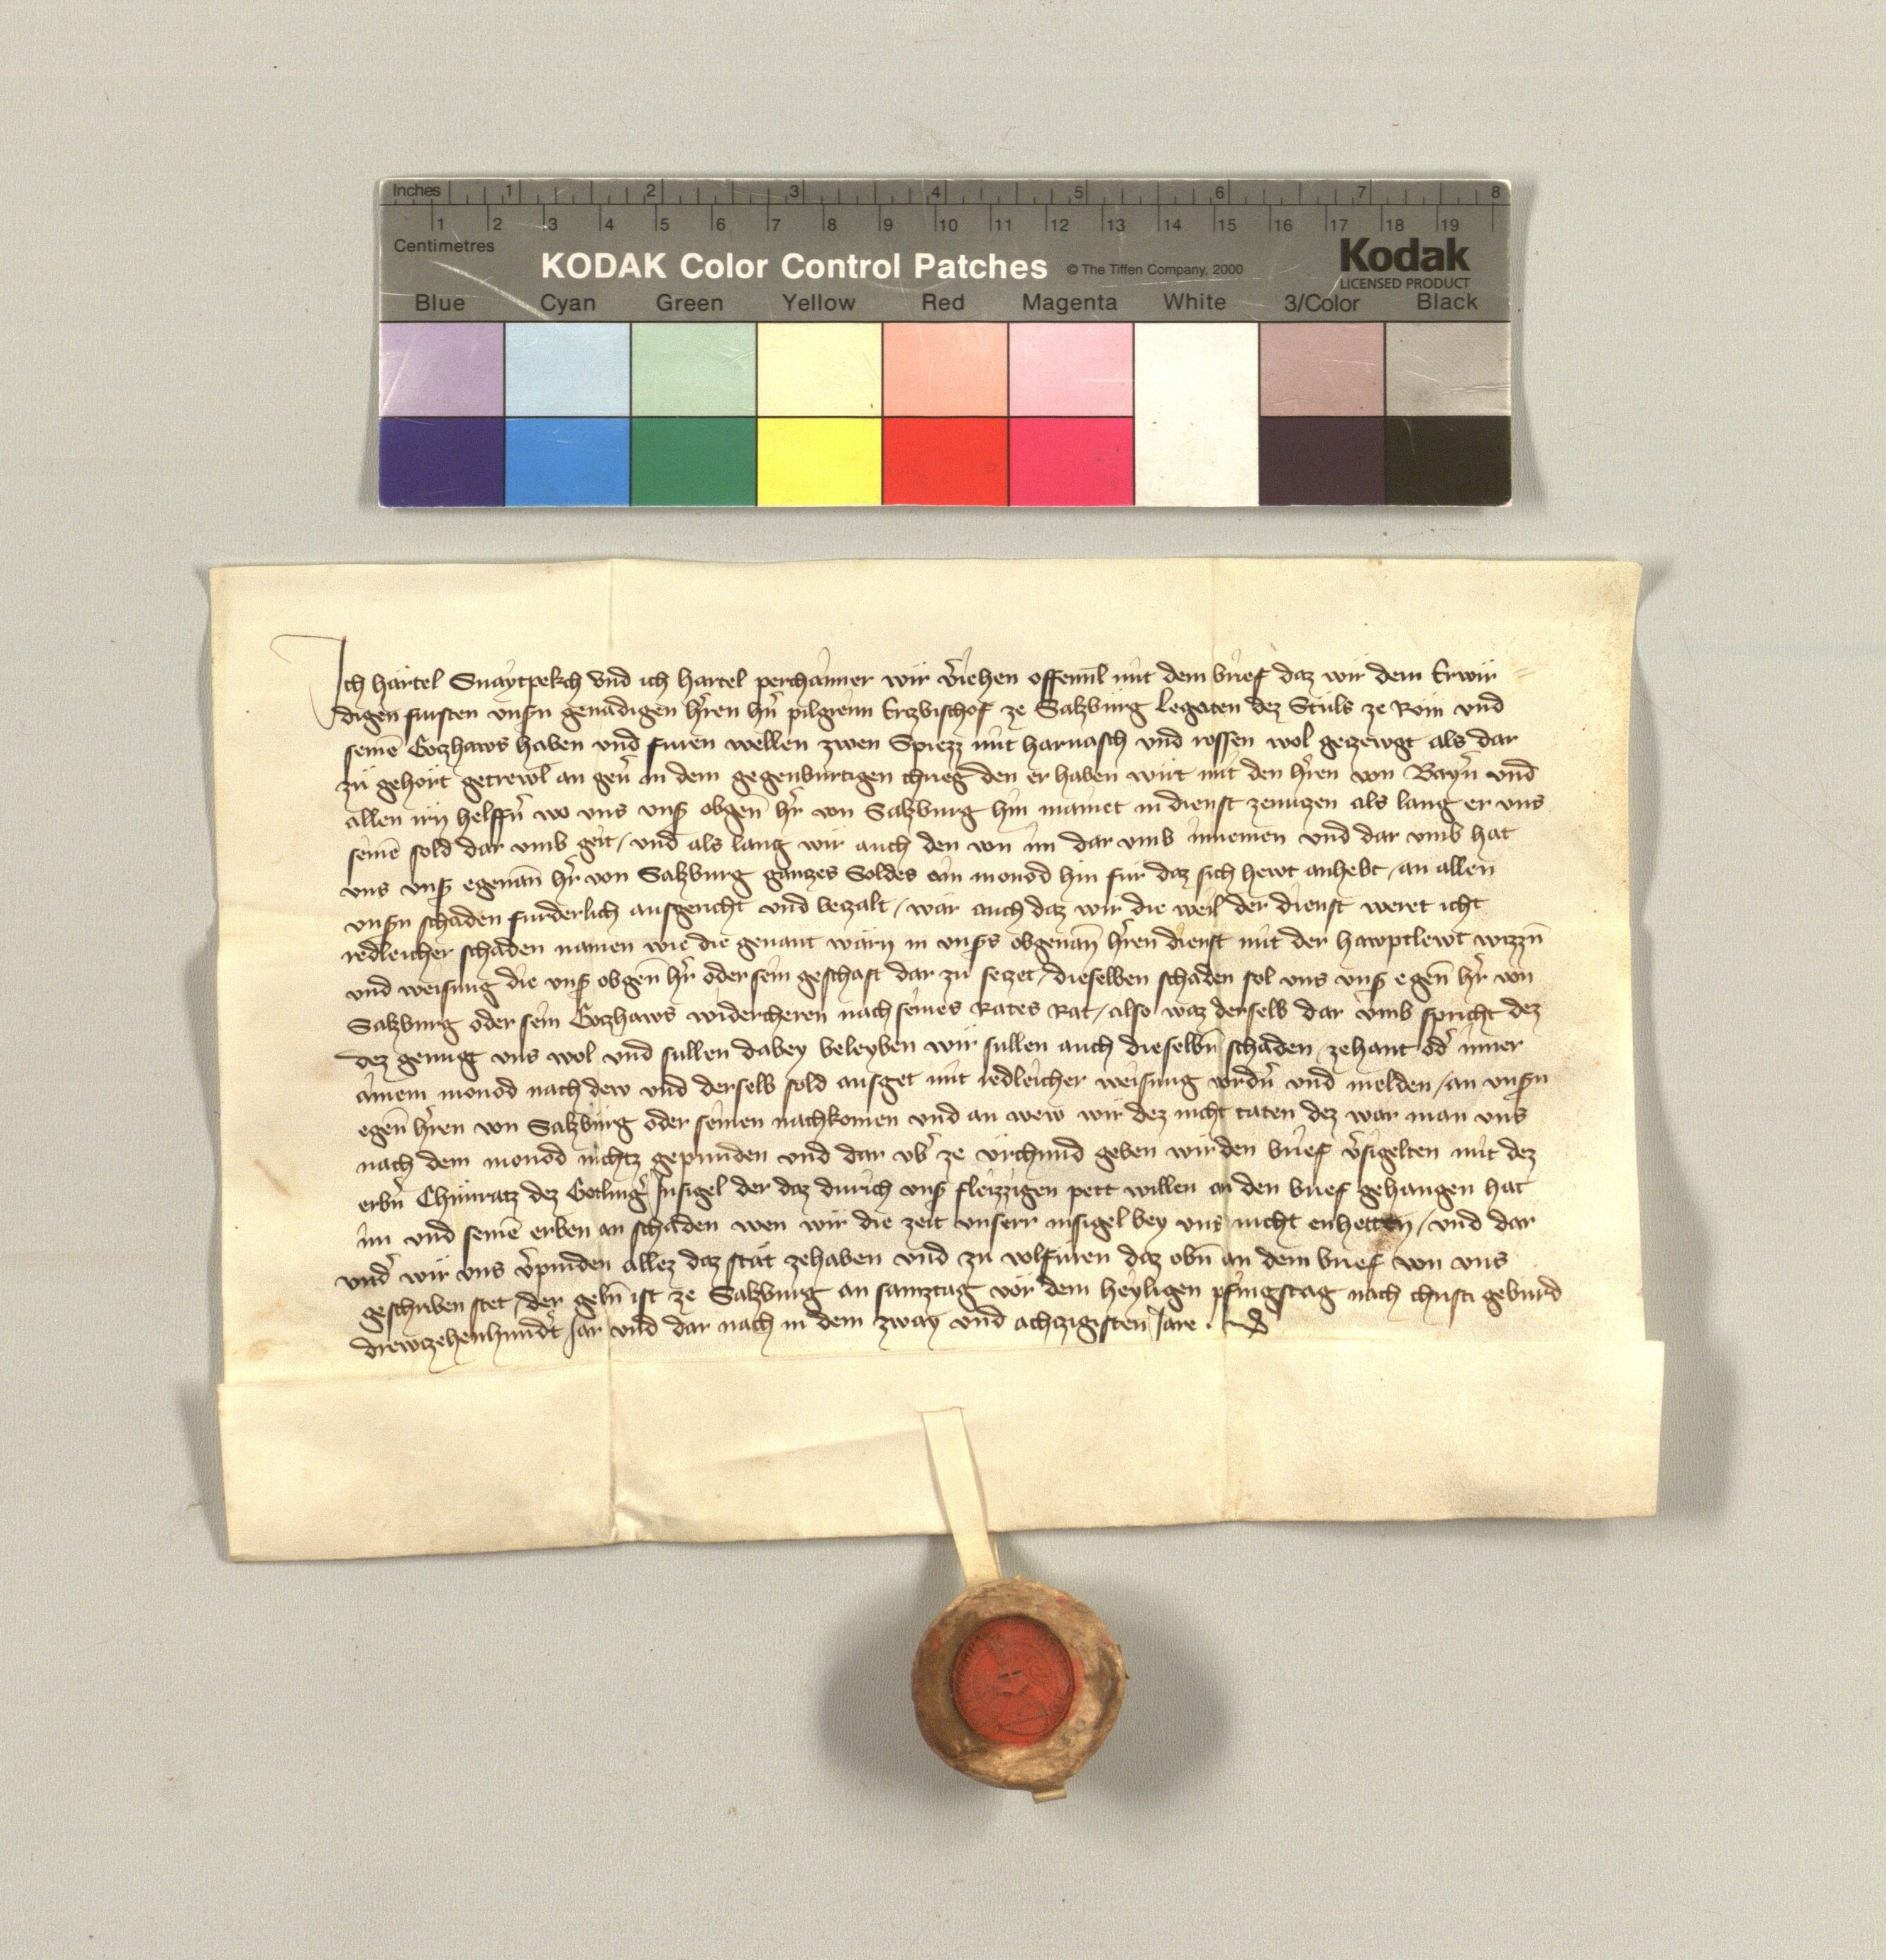 Inches 1 2 3 4 5 6 7 8
1 2 3 4 5 6 7 8 9 10 11 12 13 14 15 16 17 18 19
Centimetres
KODAK Color Control Patches © The Tiffen Company, 2000 Kodak
LICENSED PRODUCT
Blue Cyan Green Yellow Red Magenta White 3/Color Black
Ich härtel Snaytpekch vnd ich hartel perchaimer wir v̂iehen offenl̄ mit dem brief daz wir dem Erwir
digen fursten vnsn̄ genädigen hr̂en hn̂ pilgreim Erzbischof ze Salzburg Legaten dez Stuls ze Rom vnd
seinē Gozhaws haben vnd furen wellen zwen Spiezz mit harnasch vnd rossen wol gezewgt als dar
zu gehört getrewl̄ an gen̂ in dem gegenburtigen chrieg den er haben wirt mit den hr̂en von Bayn̂ vnd
allen irn helffn̂ wo vns vnsr̂ obgen̄ hr̂ von Salzburg hin mainet in dienst zenutzen als lang er vns
seinē sold dar vmb geit / vnd als lang wir auch den von im dar vmb innemen vnd dar vmb hat
vns vnsr̂ egenan̄ hr̂ von Salzburg ganzes Soldes ain monod hin fur daz sich hewt anhebt / an allen
vnsn̄ schaden furderlich ausgericht vnd bezalt / wär auch daz wir die weil der dienst weret icht
redleicher schäden namen wie die genant wärn in vnsr̂s obgenan̄ hr̂en dienst mit der hawptlewt wizzn̄
vnd weisung die vnsr̂ obgen̄ hr̂ oder sein geschäft dar zu sezet / dieselben schäden sol vns vnsr̂ egen̄ hr̂ von
Salzburg oder sein Gozhaws widercheren nach seines Rates Rat / also waz derselb dar vmb spricht dez
dez genugt vns wol vnd sullen dabey beleyben wir sullen auch dieselbn̄ schäden / zehant od̂ inner
ainem monod nach dew vnd derselb sold ausget mit redleicher weisung vordn̂ vnd melden / an vnsn̄
egen̄ hr̂en von Salzburg oder seinen nachkomen vnd an wew wir dez nicht täten dez wär man vns
nach dem monod nichtz gepunden vnd dar vb̂ ze vrchund geben wir den brief v̂sigelten mit dez
erbn̂ Chunratz dez Gotlinĝ Insigel der daz durich vnsr̂ fleizzigen pett willen an den brief gehangen hat
im vnd seinē erben an schaden wen wir die zeit vnserr insigel bey vns nicht enhetten / vnd dar
vnd̂ wir vns v̂pinden allez daz stät zehaben vnd zu volfuren daz obn̄ an dem brief von vns
geschriben stet / der gebn̄ ist ze Salzburg an samztag vor dem heyligen pfingstag nach christi geburd
drewzehenhundt̂ Jar vnd dar nach in dem zway vnd achzigisten Jare .